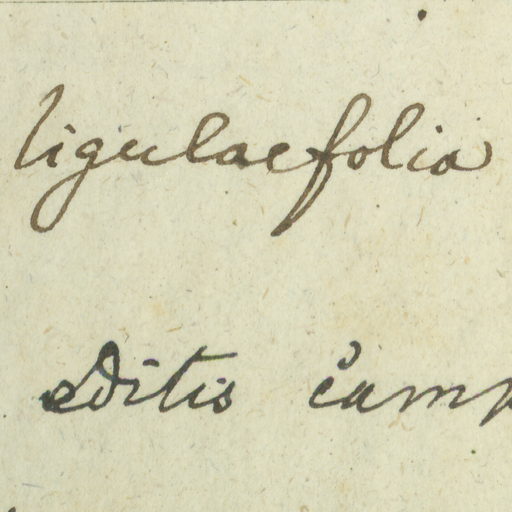 ligulaefolia
editis camp